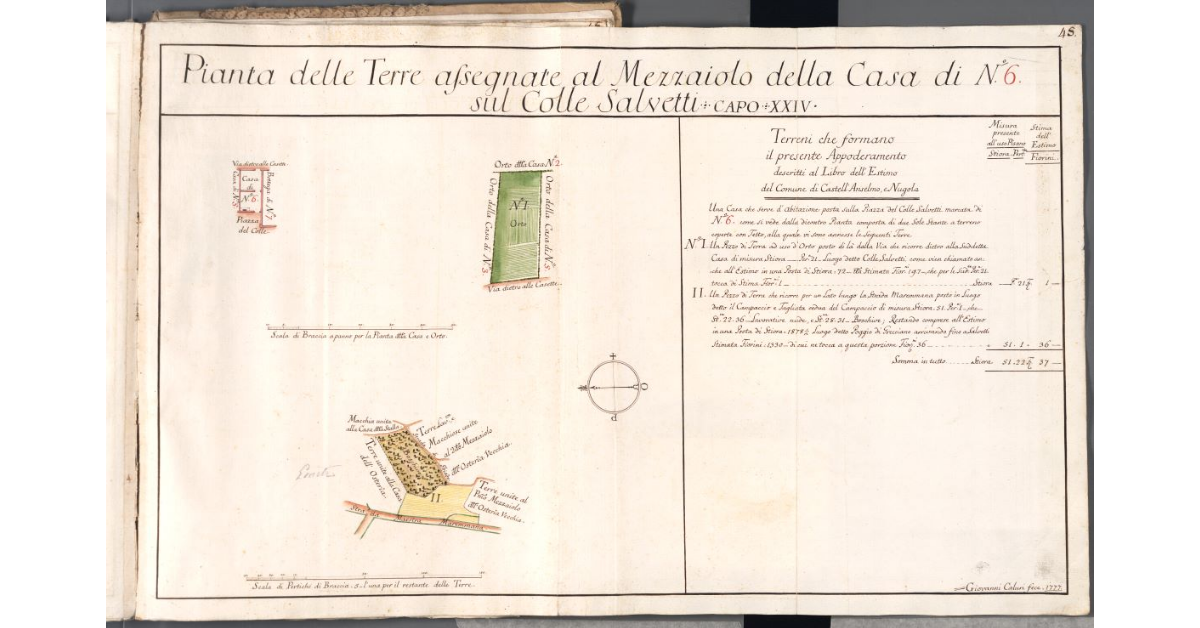 48.
Pianta delle Terre assegnate al Mezzaiolo della Casa di N.º 6.
sul Colle Salvetti · CAPO · XXIV ·
Via dietro alle Casette
Casa di N.º 5
Casa
di
N.º 6.
di N.º 7
Piazza
del Colle
Orto della Casa N.º 2.
Orto della Casa di N.º 3
N.º I
Orto
Orto della Casa di N.º 5
Via dietro alle Casette.
Scala di Braccia a panno per la Pianta della Casa e Orto.
Macchia unita
alla Casa della
Terre
Macchiose unite
al Mezzaiolo
dell' Osteria Vecchia.
Terre unite alla Casa
dell' Osteria.
II.
Terre unite al
Mezzaiolo
dell' Osteria Vecchia.
Strada Maremmana
Scala di Pertiche di Braccia 5. l'una per il restante delle Terre.
Terreni che formano
il presente Appoderamento
descritti al Libro dell' Estimo
del Comune di Castell Anselmo, e Nugola
Misura
presente
all' uso Pisano
Stiora Per.
Stima
dell'
Estimo
Fiorini
Una Casa che serve d'Abitazione posta sulla Piazza del Colle Salvetti, marcata di
N.º 6. come si vede dalla dicontro Pianta composta di due Sole Stanze a terreno
coperta con Tetto, alla quale vi sono annesse le Seguenti Terre.
N.º I. Un Pezzo di Terra ad uso d'Orto posto di là dalla Via che ricorre dietro alla Suddetta
Casa di misura Stiora — Per. 21 — Luogo detto Colle Salvetti, come vien chiamato an-
che all' Estimo in una Posta di Stiora 72 — Stimata Fior. 197 — che per le Sud. Per. 21
tocca di Stima Fior. 1 Stiora 1 —
II. Un Pezzo di Terra che ricorre per un Lato lungo la Strada Maremmana posto in Luogo
detto il Campaccio e Tagliata del Campaccio di misura Stiora 51. Per. 1 — che
St. 22. 36 — Lavorative nude, e St. 28. 31 — Boschive, Restando comprese all' Estimo
in una Posta di Stiora Luogo detto Poggio di
Stimata Fiorini 1330 — di cui ne tocca a questa porzione Fior. 36 51. 1 36 —
Somma in tutto Stiora 51. 22 37 —
Giovanni Caluri fece 1777.